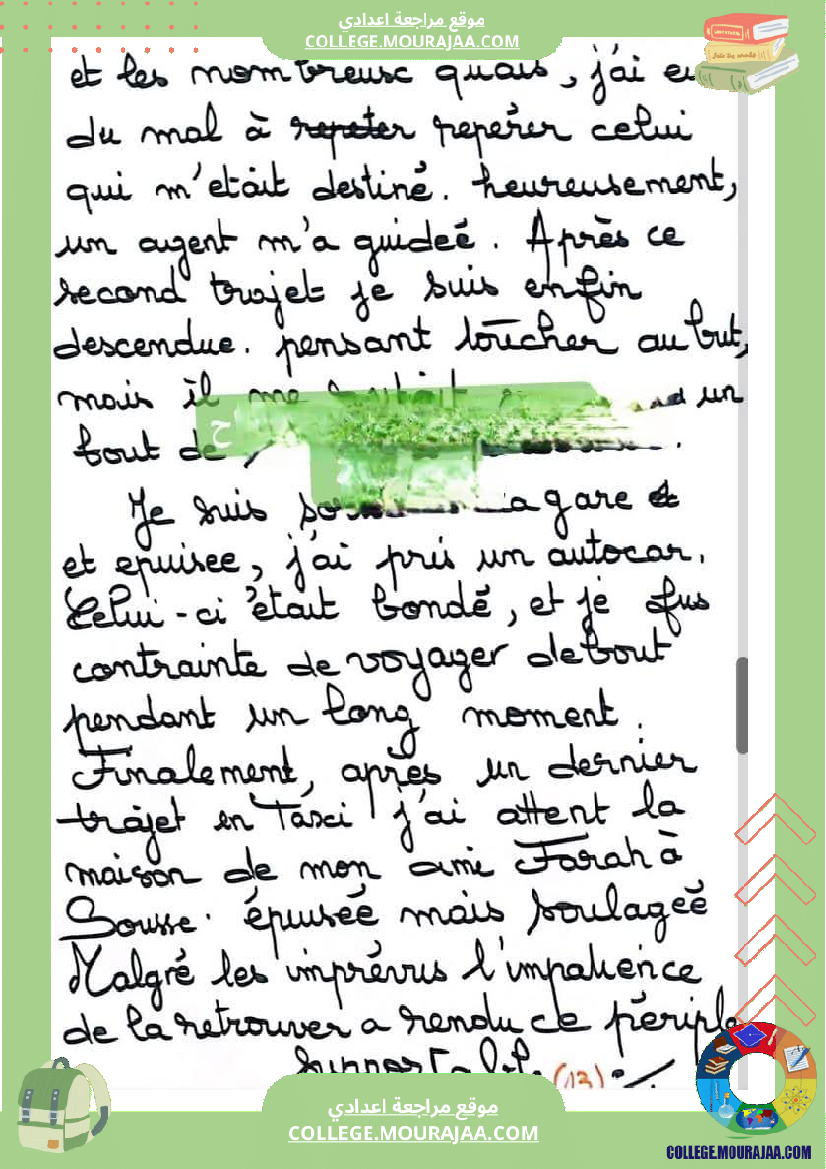 موقع مراجعة اعدادي
COLLEGE.MOURAJAA.COM
et les nombreusc quais, j'ai eu
du mal à repeter reperer celui
qui m'etait destiné. heureusement,
un agent m'a guideé. Après ce
second trajet je suis enfin
descendue. pensant toucher au but,
mais il me un
bout de
Je suis la gare
et epuisee, j'ai pris un autocar.
Celui-ci était bondé, et je fus
contrainte de voyager debout
pendant un long moment.
Finalement, après un dernier
trajet en Taxi j'ai attent la
maison de mon ami Farah à
Sousse. épuiseé mais soulageé
Malgré les imprévus l'impatience
de la retrouver a rendu ce périple
supportable. (13)
موقع مراجعة اعدادي
COLLEGE.MOURAJAA.COM
COLLEGE.MOURAJAA.COM